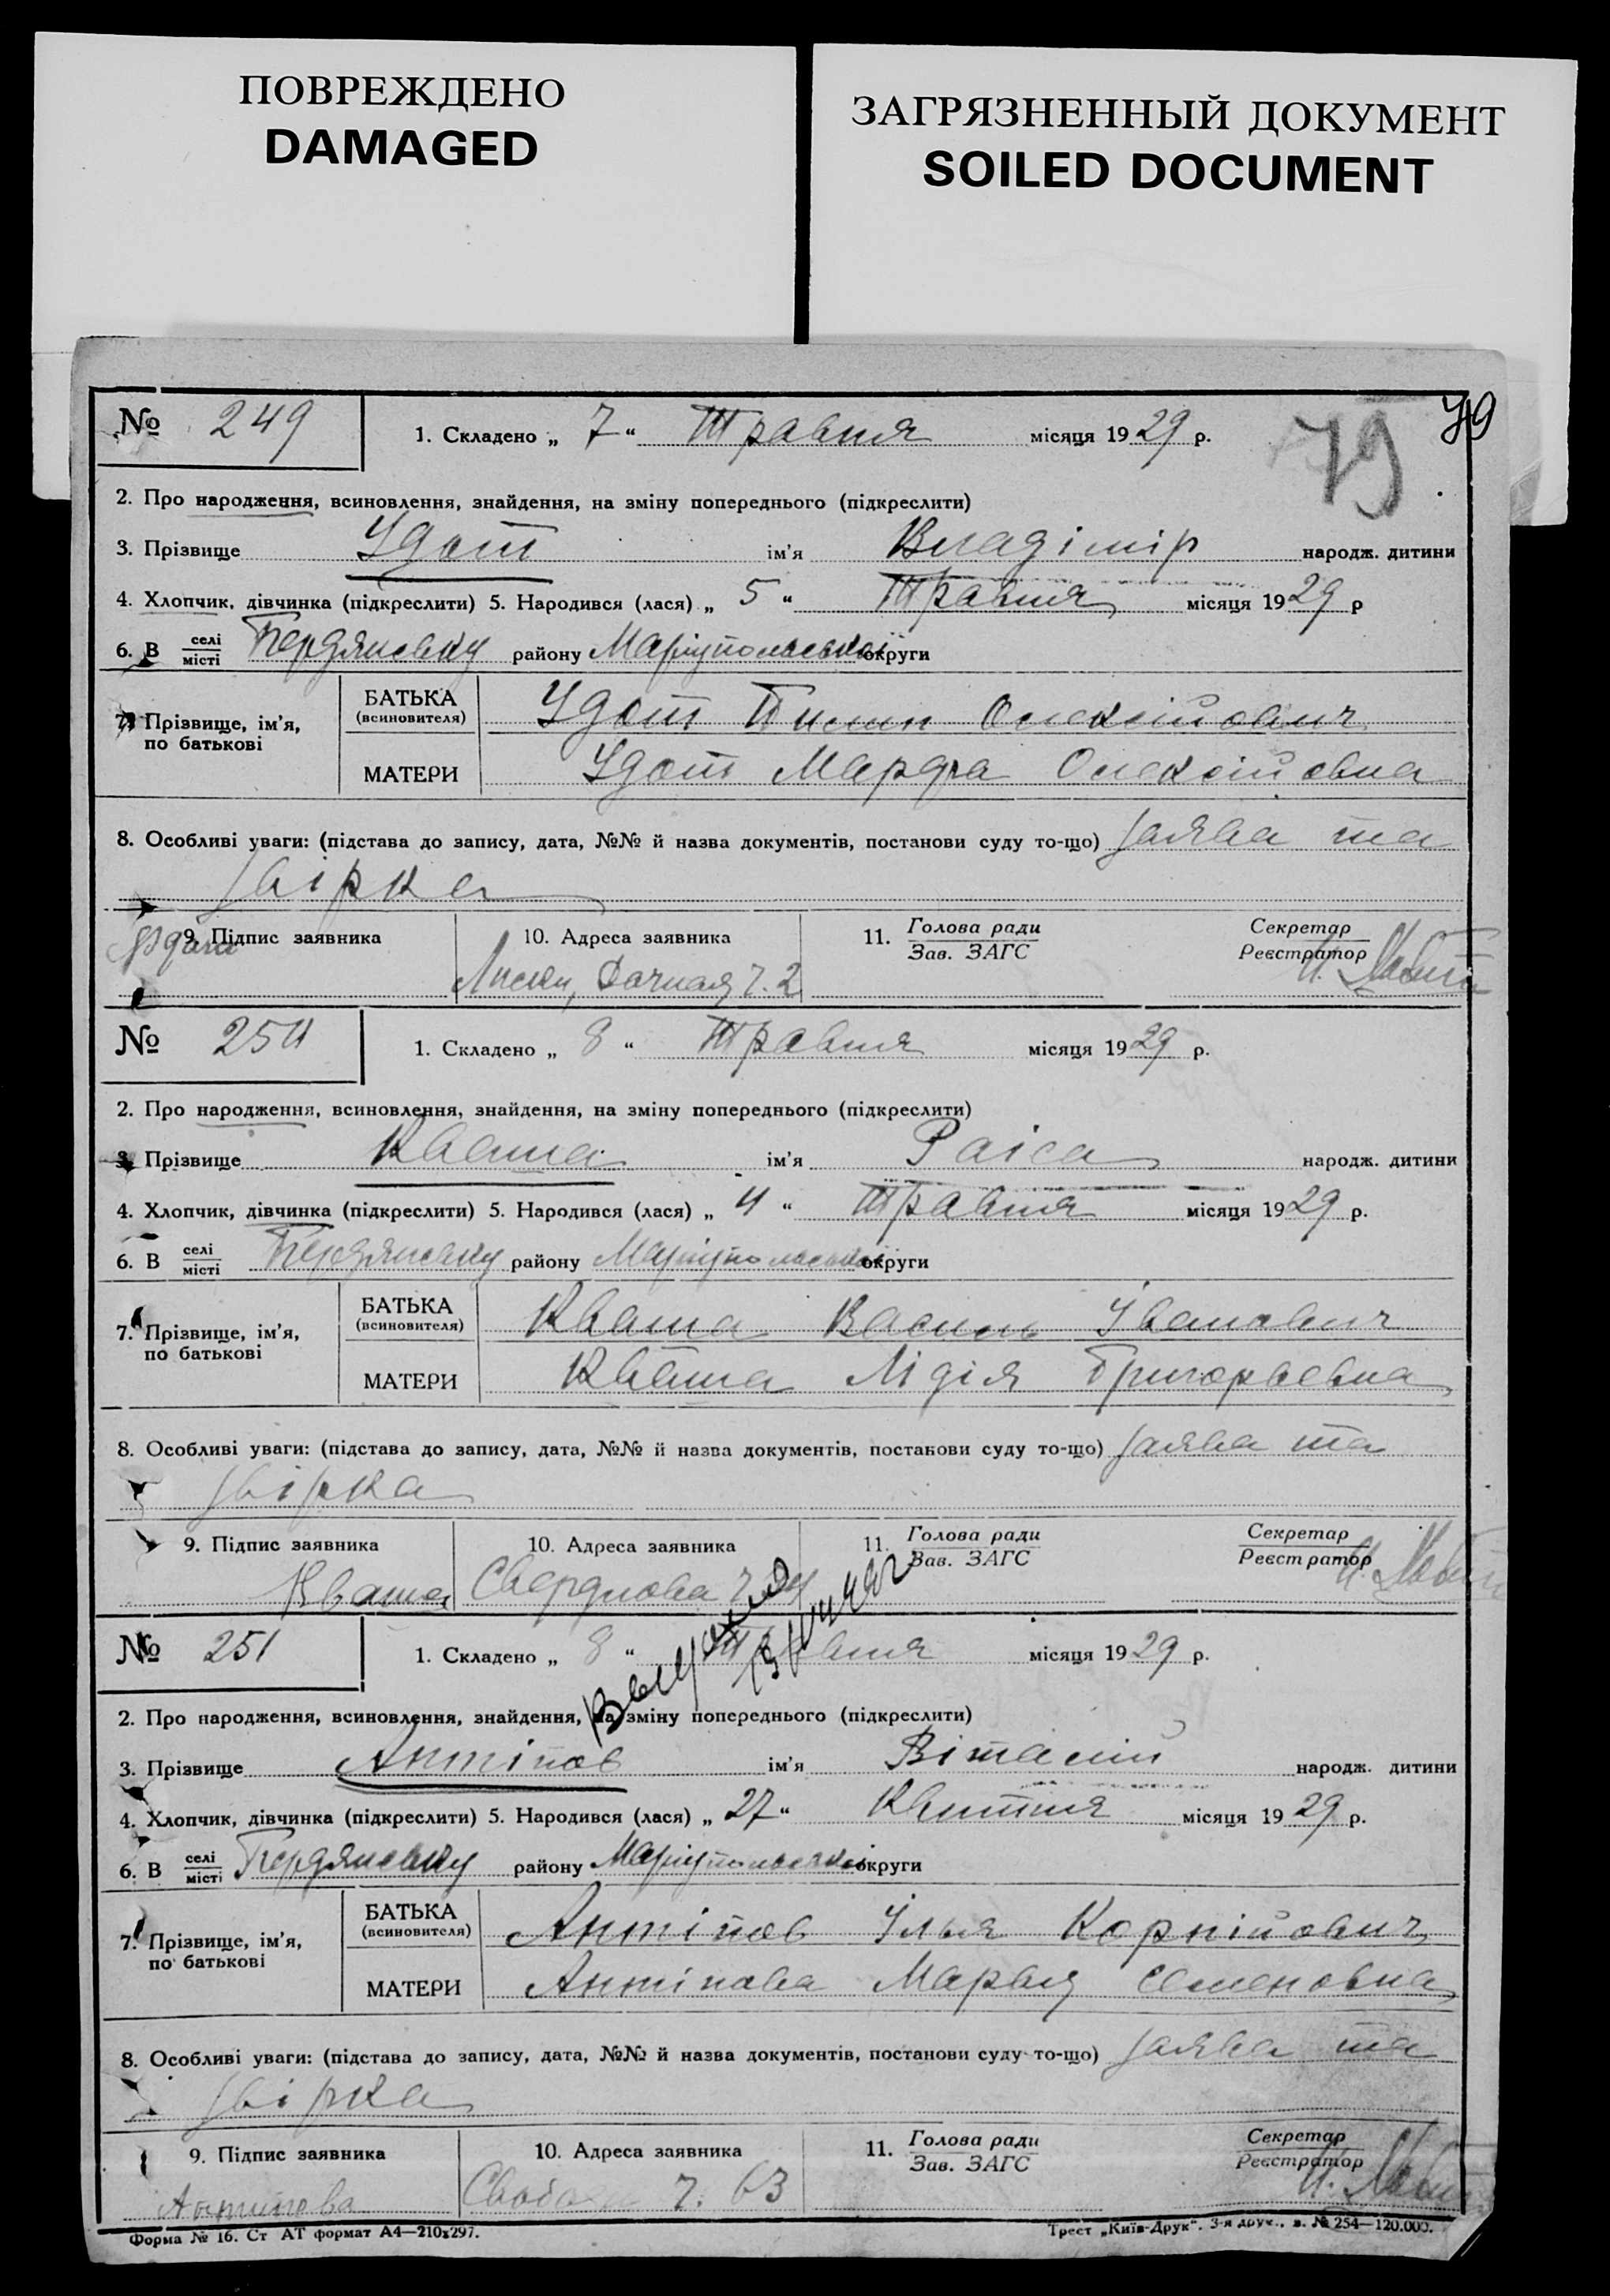 ПОВРЕЖДЕНО
DAMAGED
ЗАГРЯЗНЕННЫЙ ДОКУМЕНТ
SOILED DOCUMENT
79
79
№ 249
1. Складено „ 7 “ Травня місяця 1929 р.
2. Про народження, всиновлення, знайдення, на зміну попереднього (підкреслити)
3. Прізвище Удот ім'я Владімір народж. дитини
4. Хлопчик, дівчинка (підкреслити) 5. Народився (лася) „ 5 “ Травня місяця 1929 р
6. В селі місті Бердянську району Маріупольської округи
7. Прізвище, ім'я, по батькові
БАТЬКА (всиновителя) Удот Пилип Олексійович
МАТЕРИ Удот Марфа Олексійовна
8. Особливі уваги: (підстава до запису, дата, №№ й назва документів, постанови суду то-що) заява та
звірка
9. Підпис заявника 10. Адреса заявника 11. Голова ради Зав. ЗАГС Секретар Реєстратор
Лиски, Дачная ч. 2
№ 250
1. Складено „ 8 “ Травня місяця 1929 р.
2. Про народження, всиновлення, знайдення, на зміну попереднього (підкреслити)
3. Прізвище Кваша ім'я Раіса народж. дитини
4. Хлопчик, дівчинка (підкреслити) 5. Народився (лася) „ 4 “ Травня місяця 1929 р.
6. В селі місті Бердянську району Маріупольської округи
7. Прізвище, ім'я, по батькові
БАТЬКА (всиновителя) Кваша Василь Іванович
МАТЕРИ Кваша Лідія Григорьевна
8. Особливі уваги: (підстава до запису, дата, №№ й назва документів, постанови суду то-що) заява та
звірка
9. Підпис заявника 10. Адреса заявника 11. Голова ради Зав. ЗАГС Секретар Реєстратор
Кваша Свердлова ч.
№ 251
1. Складено „ 8 “ Травня місяця 1929 р.
2. Про народження, всиновлення, знайдення, на зміну попереднього (підкреслити)
3. Прізвище Антіпов ім'я Віталій народж. дитини
4. Хлопчик, дівчинка (підкреслити) 5. Народився (лася) „ 27 “ Квитня місяця 1929 р.
6. В селі місті Бердянську району Маріупольської округи
7. Прізвище, ім'я, по батькові
БАТЬКА (всиновителя) Антіпов Ілья Корнійович
МАТЕРИ Антіпова Марья Семеновна
8. Особливі уваги: (підстава до запису, дата, №№ й назва документів, постанови суду то-що) заява та
звірка
9. Підпис заявника 10. Адреса заявника 11. Голова ради Зав. ЗАГС Секретар Реєстратор
Антипова ч. 63
Форма № 16. Ст АТ формат А4—210х297.
Трест „Київ-Друк“. 3-я друк., з. № 254—120.000.